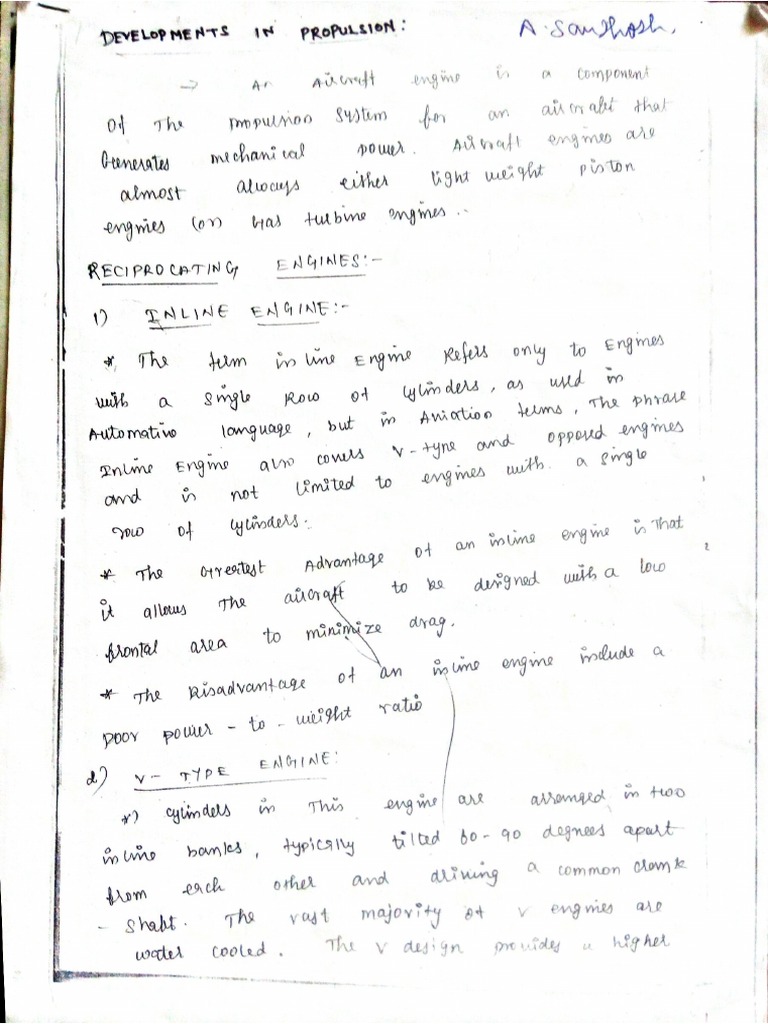 DEVELOPMENTS IN PROPULSION: A. Santhosh,
→ An Aircraft engine is a component
Of The propulsion system for an aircraft that
Generates mechanical power. Aircraft engines are
almost always either light weight piston
engines (or) Gas turbine engines..
RECIPROCATING ENGINES:-
1) INLINE ENGINE:-
* The term inline Engine Refers only to Engines
with a single Row of Cylinders, as used in
Automative language, but in Aviation terms, The phrase
Inline Engine also covers V-type and opposed engines
and is not limited to engines with a single
row of cylinders.
* The Greatest Advantage of an inline engine is That
it allows The aircraft to be designed with a low
frontal area to minimize drag.
* The Disadvantage of an inline engine include a
poor power - to - weight ratio
2) V- TYPE ENGINE:
*) Cylinders in This engine are arranged in two
inline banks, typically tilted 60-90 degrees apart
from each other and driving a common crank
- shaft. The vast majority of V engines are
water cooled. The V design provides a higher